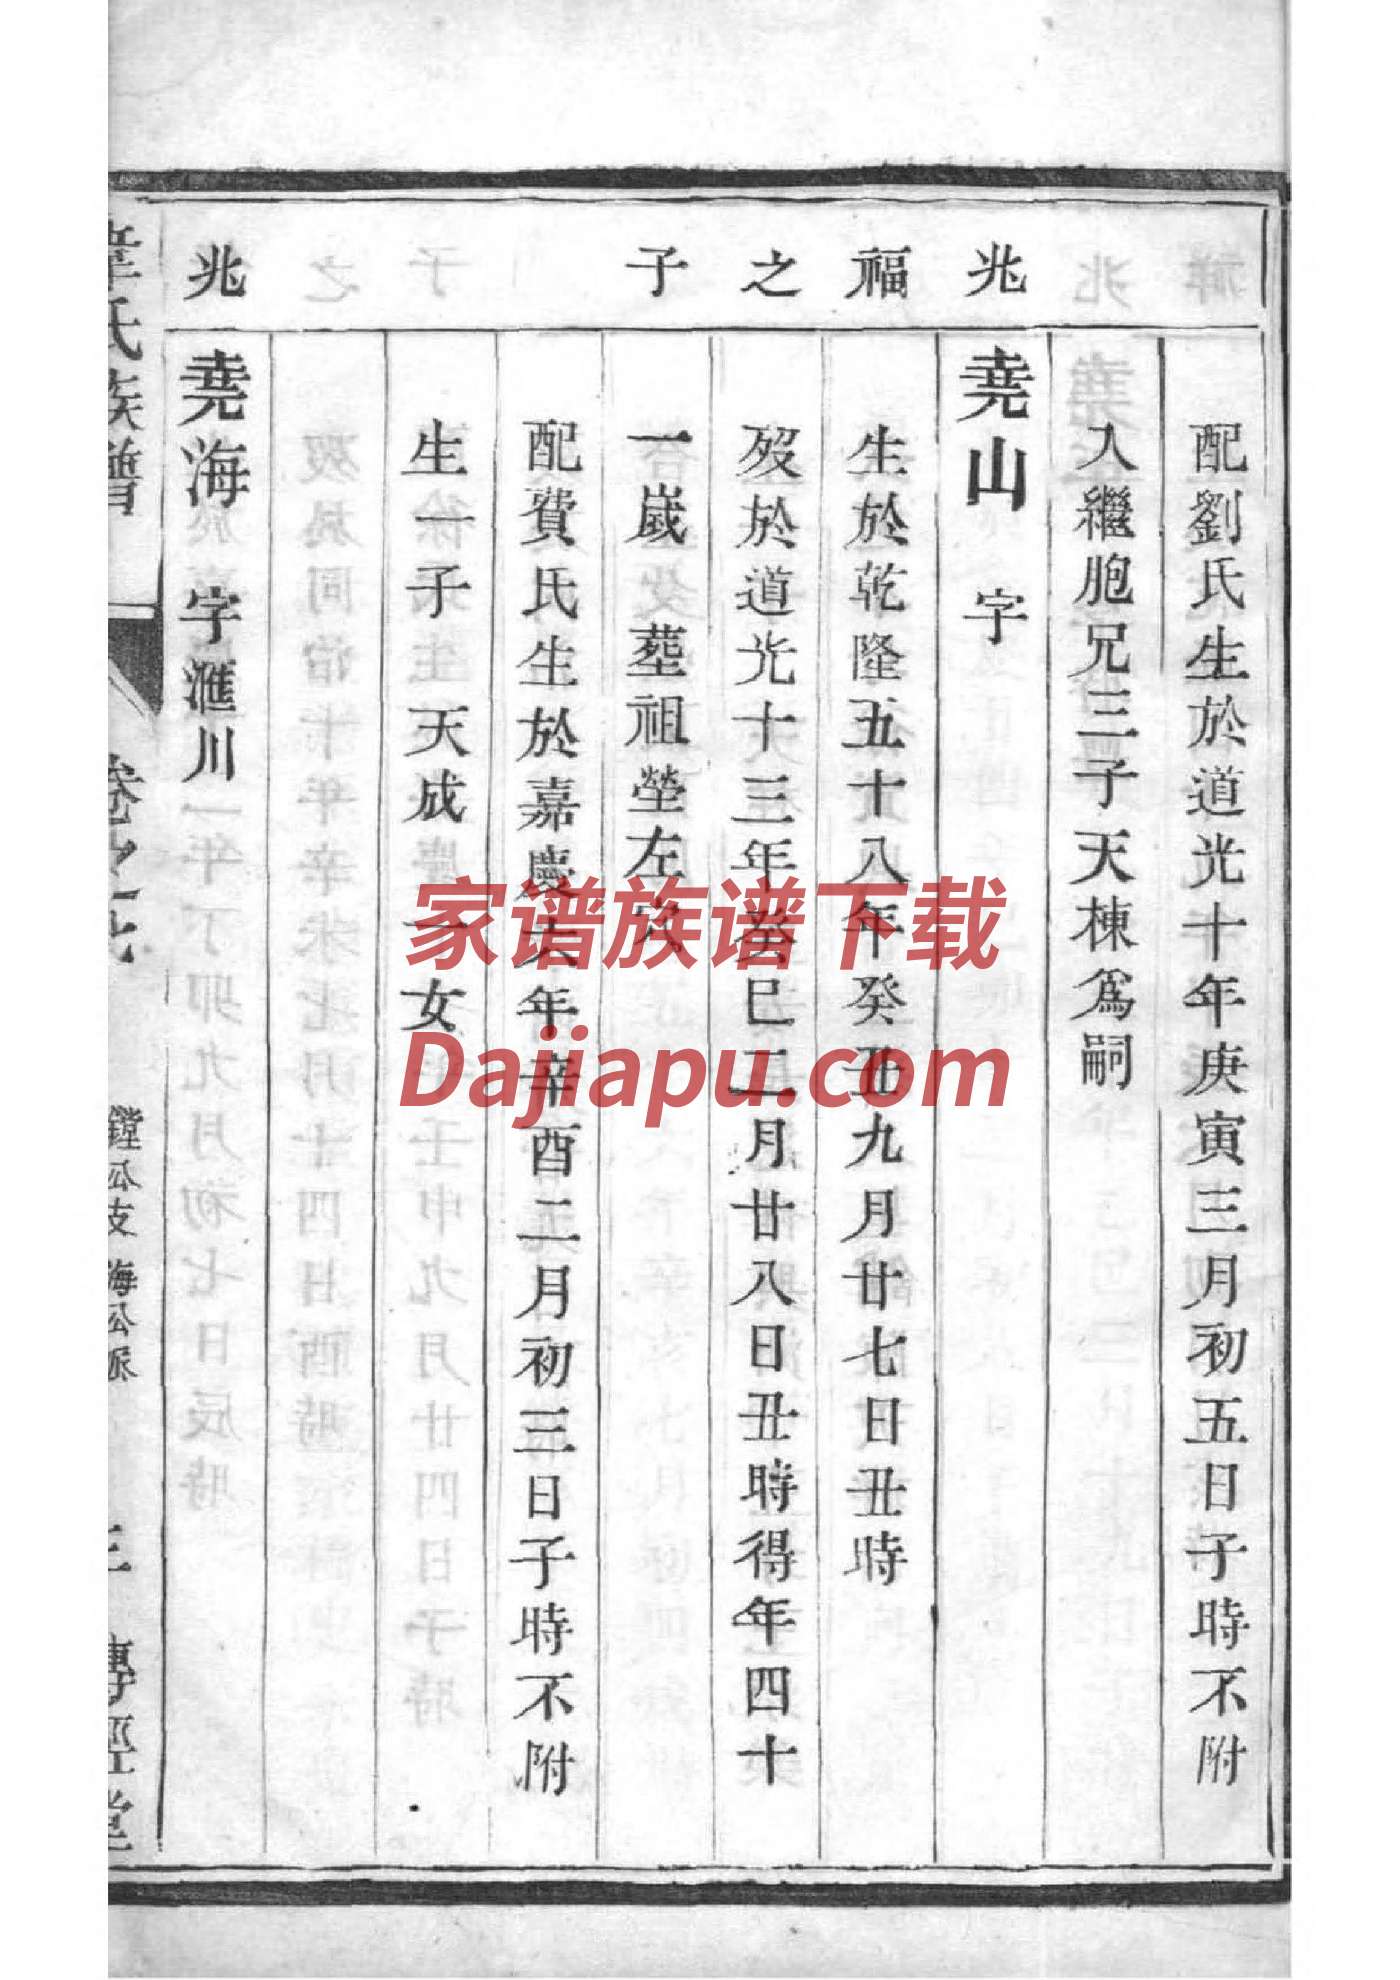 配劉氏生於道光十年庚寅三月初五日子時不附
入繼胞兄三子天棟爲嗣
兆
堯山 字
福
生於乾隆五十八年癸丑九月廿七日丑時
之
歿於道光十三年癸巳二月廿八日丑時得年四十
子
一歲 葬祖塋左穴
配費氏生於嘉慶六年辛酉二月初三日子時不附
生一子 天成 一女
兆
堯海 字滙川
韋氏族譜
卷之七
鏜公支 海公派
三
傳經堂
家谱族谱下载
Dajiapu.com